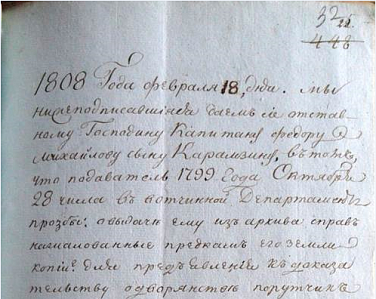 32
22
448
1808 Года февраля 18, дня. мы
нижеподписавшіяся даемъ сіе отстав
ному Господину Капитану федору
Михайлову сыну Карамзину, въ томъ,
что подаватель 1799 года Октября
28 числа въ вотчинной Департаментъ
прозбы: о выдачи ему изъ архива справ
на жалованные предкамъ его земли
копіи: для предъевленіе къ доказа
тельству о дворянстве порутчикъ